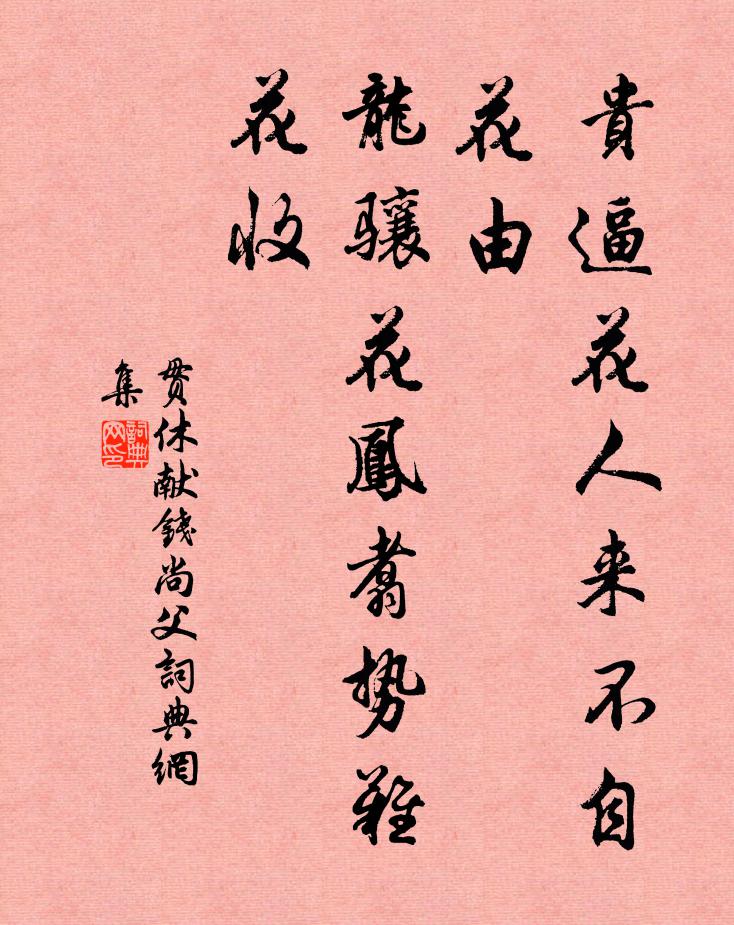 貴逼花人来不自
花由
龍驤花鳳翥势難
花收
贯休献錢尚父詞典網
集
詞典
网印